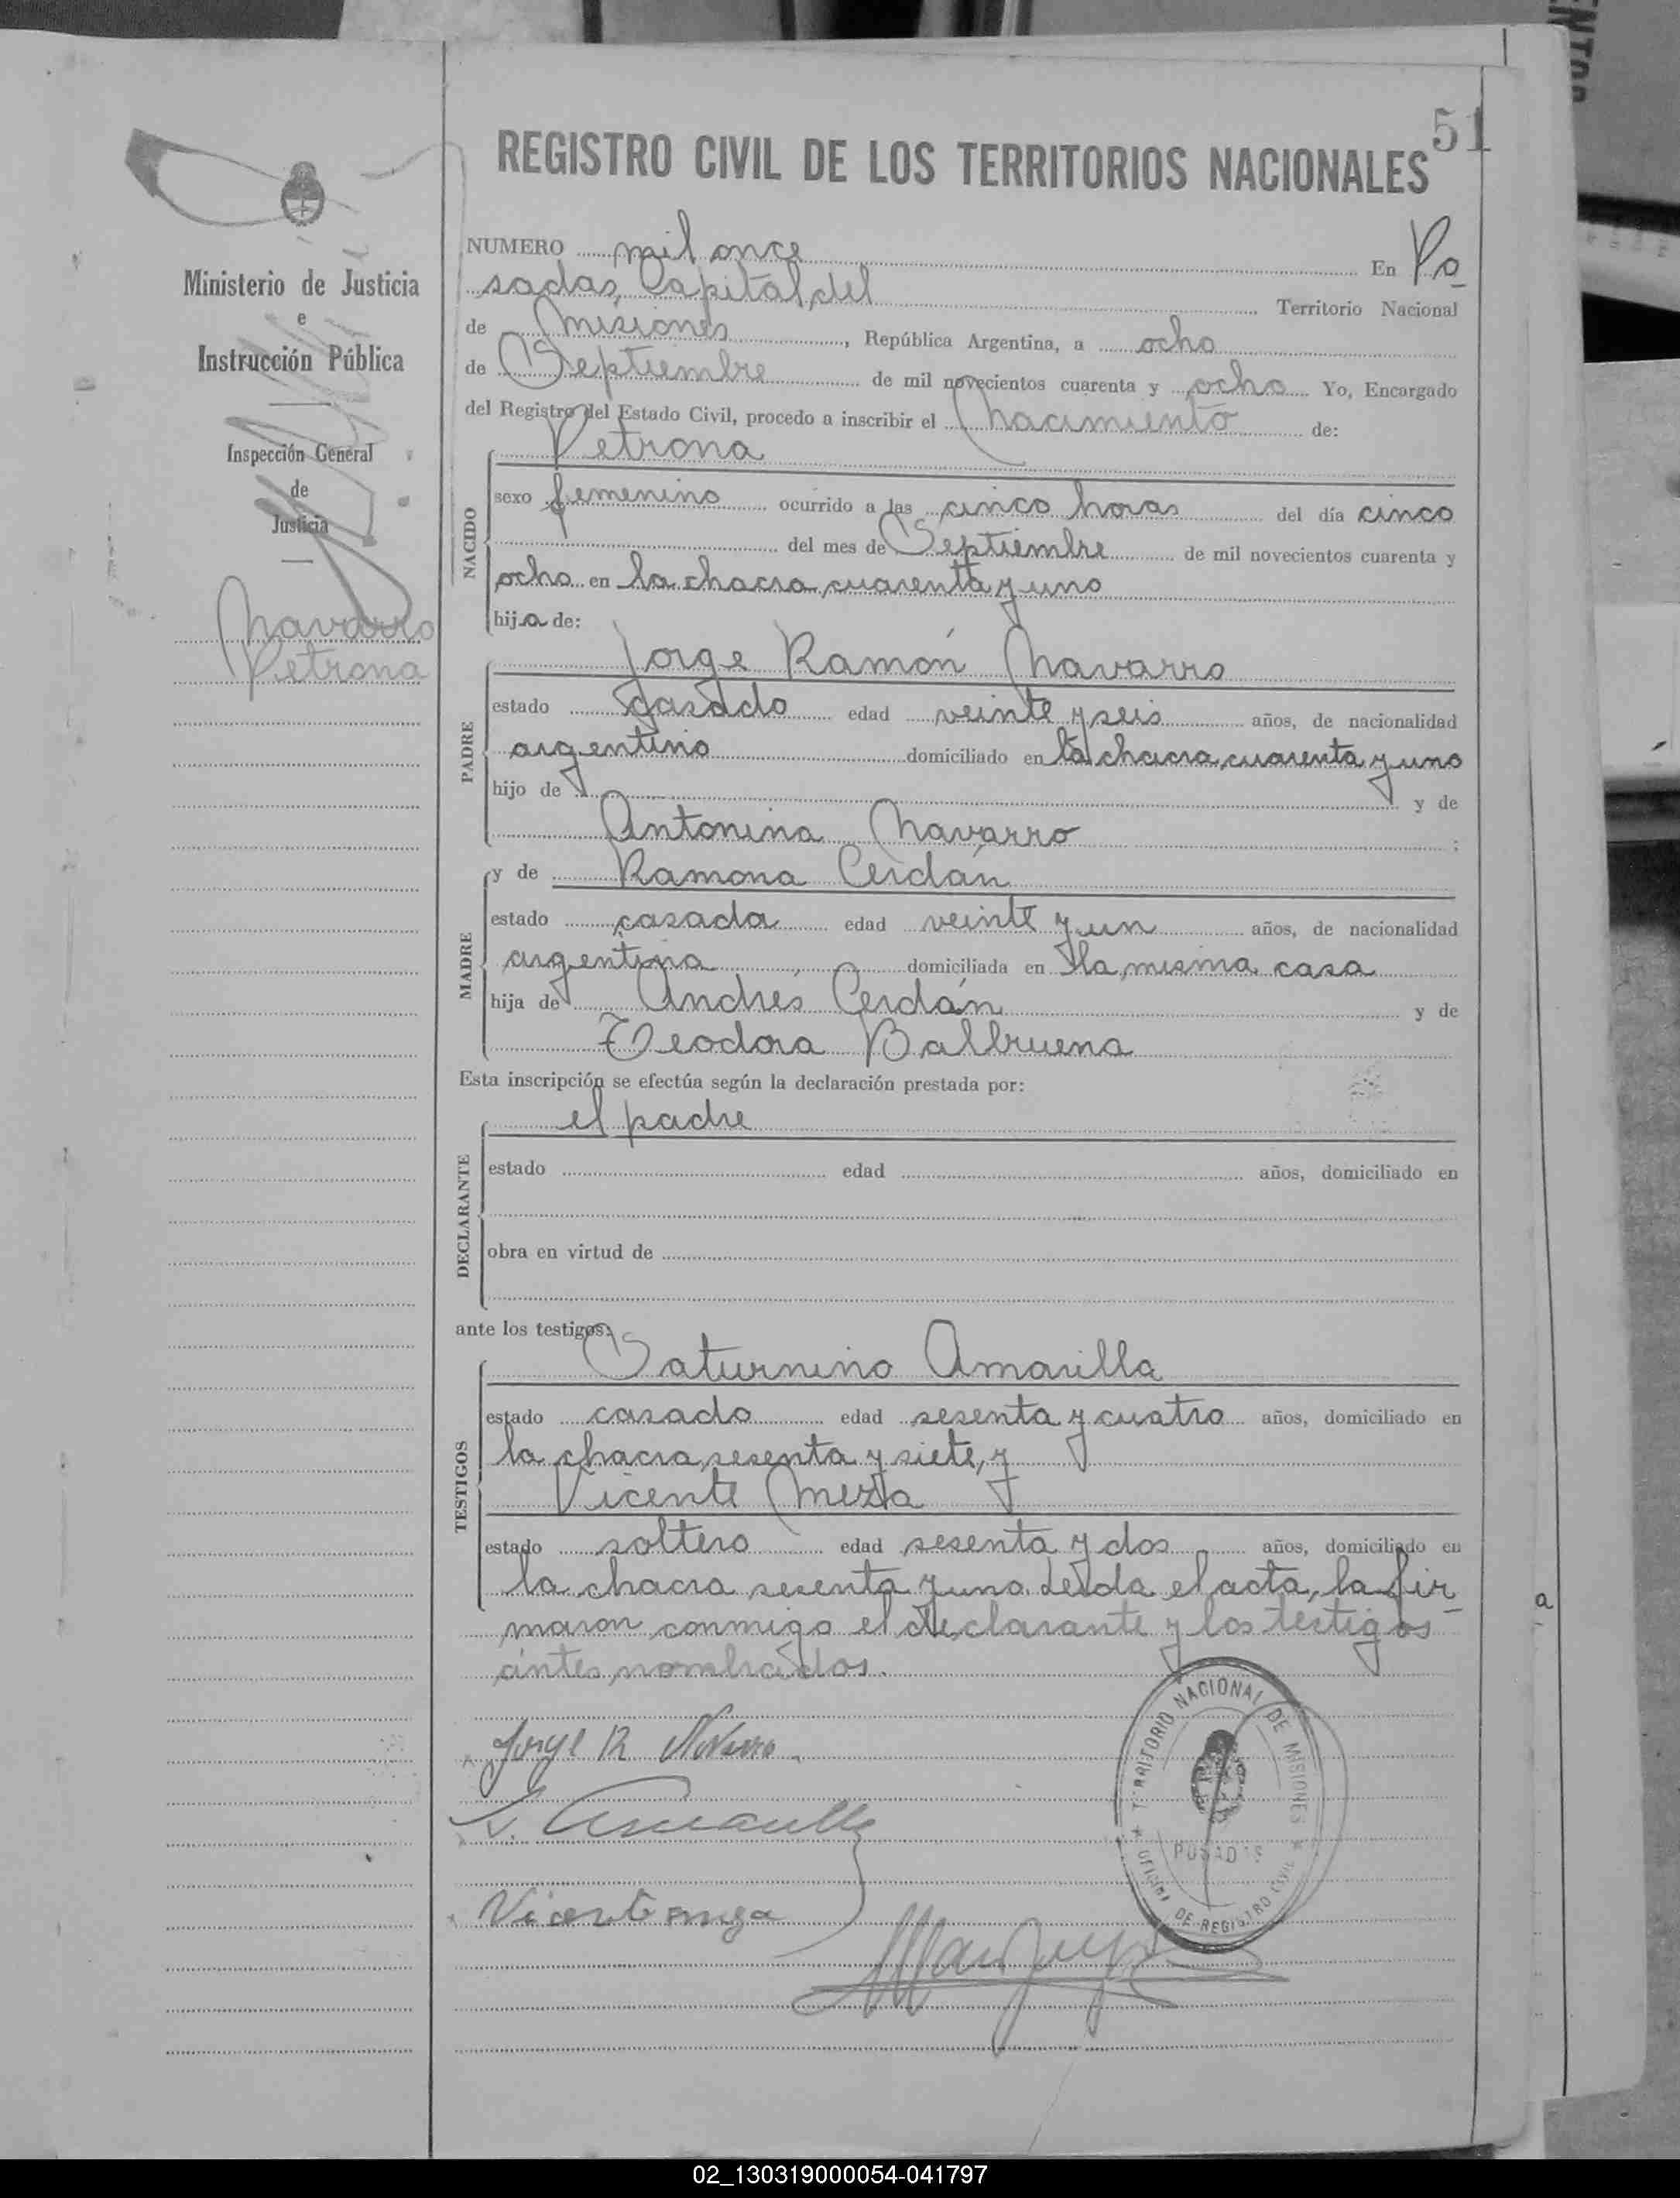 51
REGISTRO CIVIL DE LOS TERRITORIOS NACIONALES
Ministerio de Justicia
e
Instrucción Pública
Inspección General
de
Justicia
Navarro
Petrona
NUMERO mil once En Po
sadas, Capital del Territorio Nacional
de Misiones, República Argentina, a ocho
de Septiembre de mil novecientos cuarenta y ocho Yo, Encargado
del Registro del Estado Civil, procedo a inscribir el Nacimiento de:
NACIDO
Petrona
sexo femenino ocurrido a las cinco horas del día cinco
del mes de Septiembre de mil novecientos cuarenta y
ocho en la chacra cuarenta y uno
hija de:
PADRE
Jorge Ramón Navarro
estado casado edad veinte y seis años, de nacionalidad
argentino domiciliado en la chacra cuarenta y uno
hijo de y de
Antonina Navarro ;
MADRE
y de Ramona Cerdán
estado casada edad veinte y un años, de nacionalidad
argentina domiciliada en la misma casa
hija de Andrés Cerdán y de
Teodora Balbuena
Esta inscripción se efectúa según la declaración prestada por:
DECLARANTE
el padre
estado edad años, domiciliado en
obra en virtud de
ante los testigos:
TESTIGOS
Saturnino Amarilla
estado casado edad sesenta y cuatro años, domiciliado en
la chacra sesenta y siete, y
Vicente Meza
estado soltero edad sesenta y dos años, domiciliado en
la chacra sesenta y uno. Leída el acta, la fir
maron conmigo el declarante y los testigos
antes nombrados.
Jorge R Navarro
S. Amarilla
TERRITORIO NACIONAL DE MISIONES
POSADAS
OFICINA DE REGISTRO CIVIL
a
02_130319000054-041797